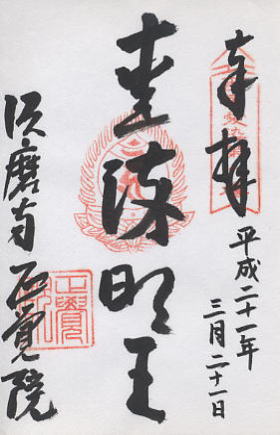 奉拝
平成二十一年
三月二十一日
愛染明王
須磨寺正覚院